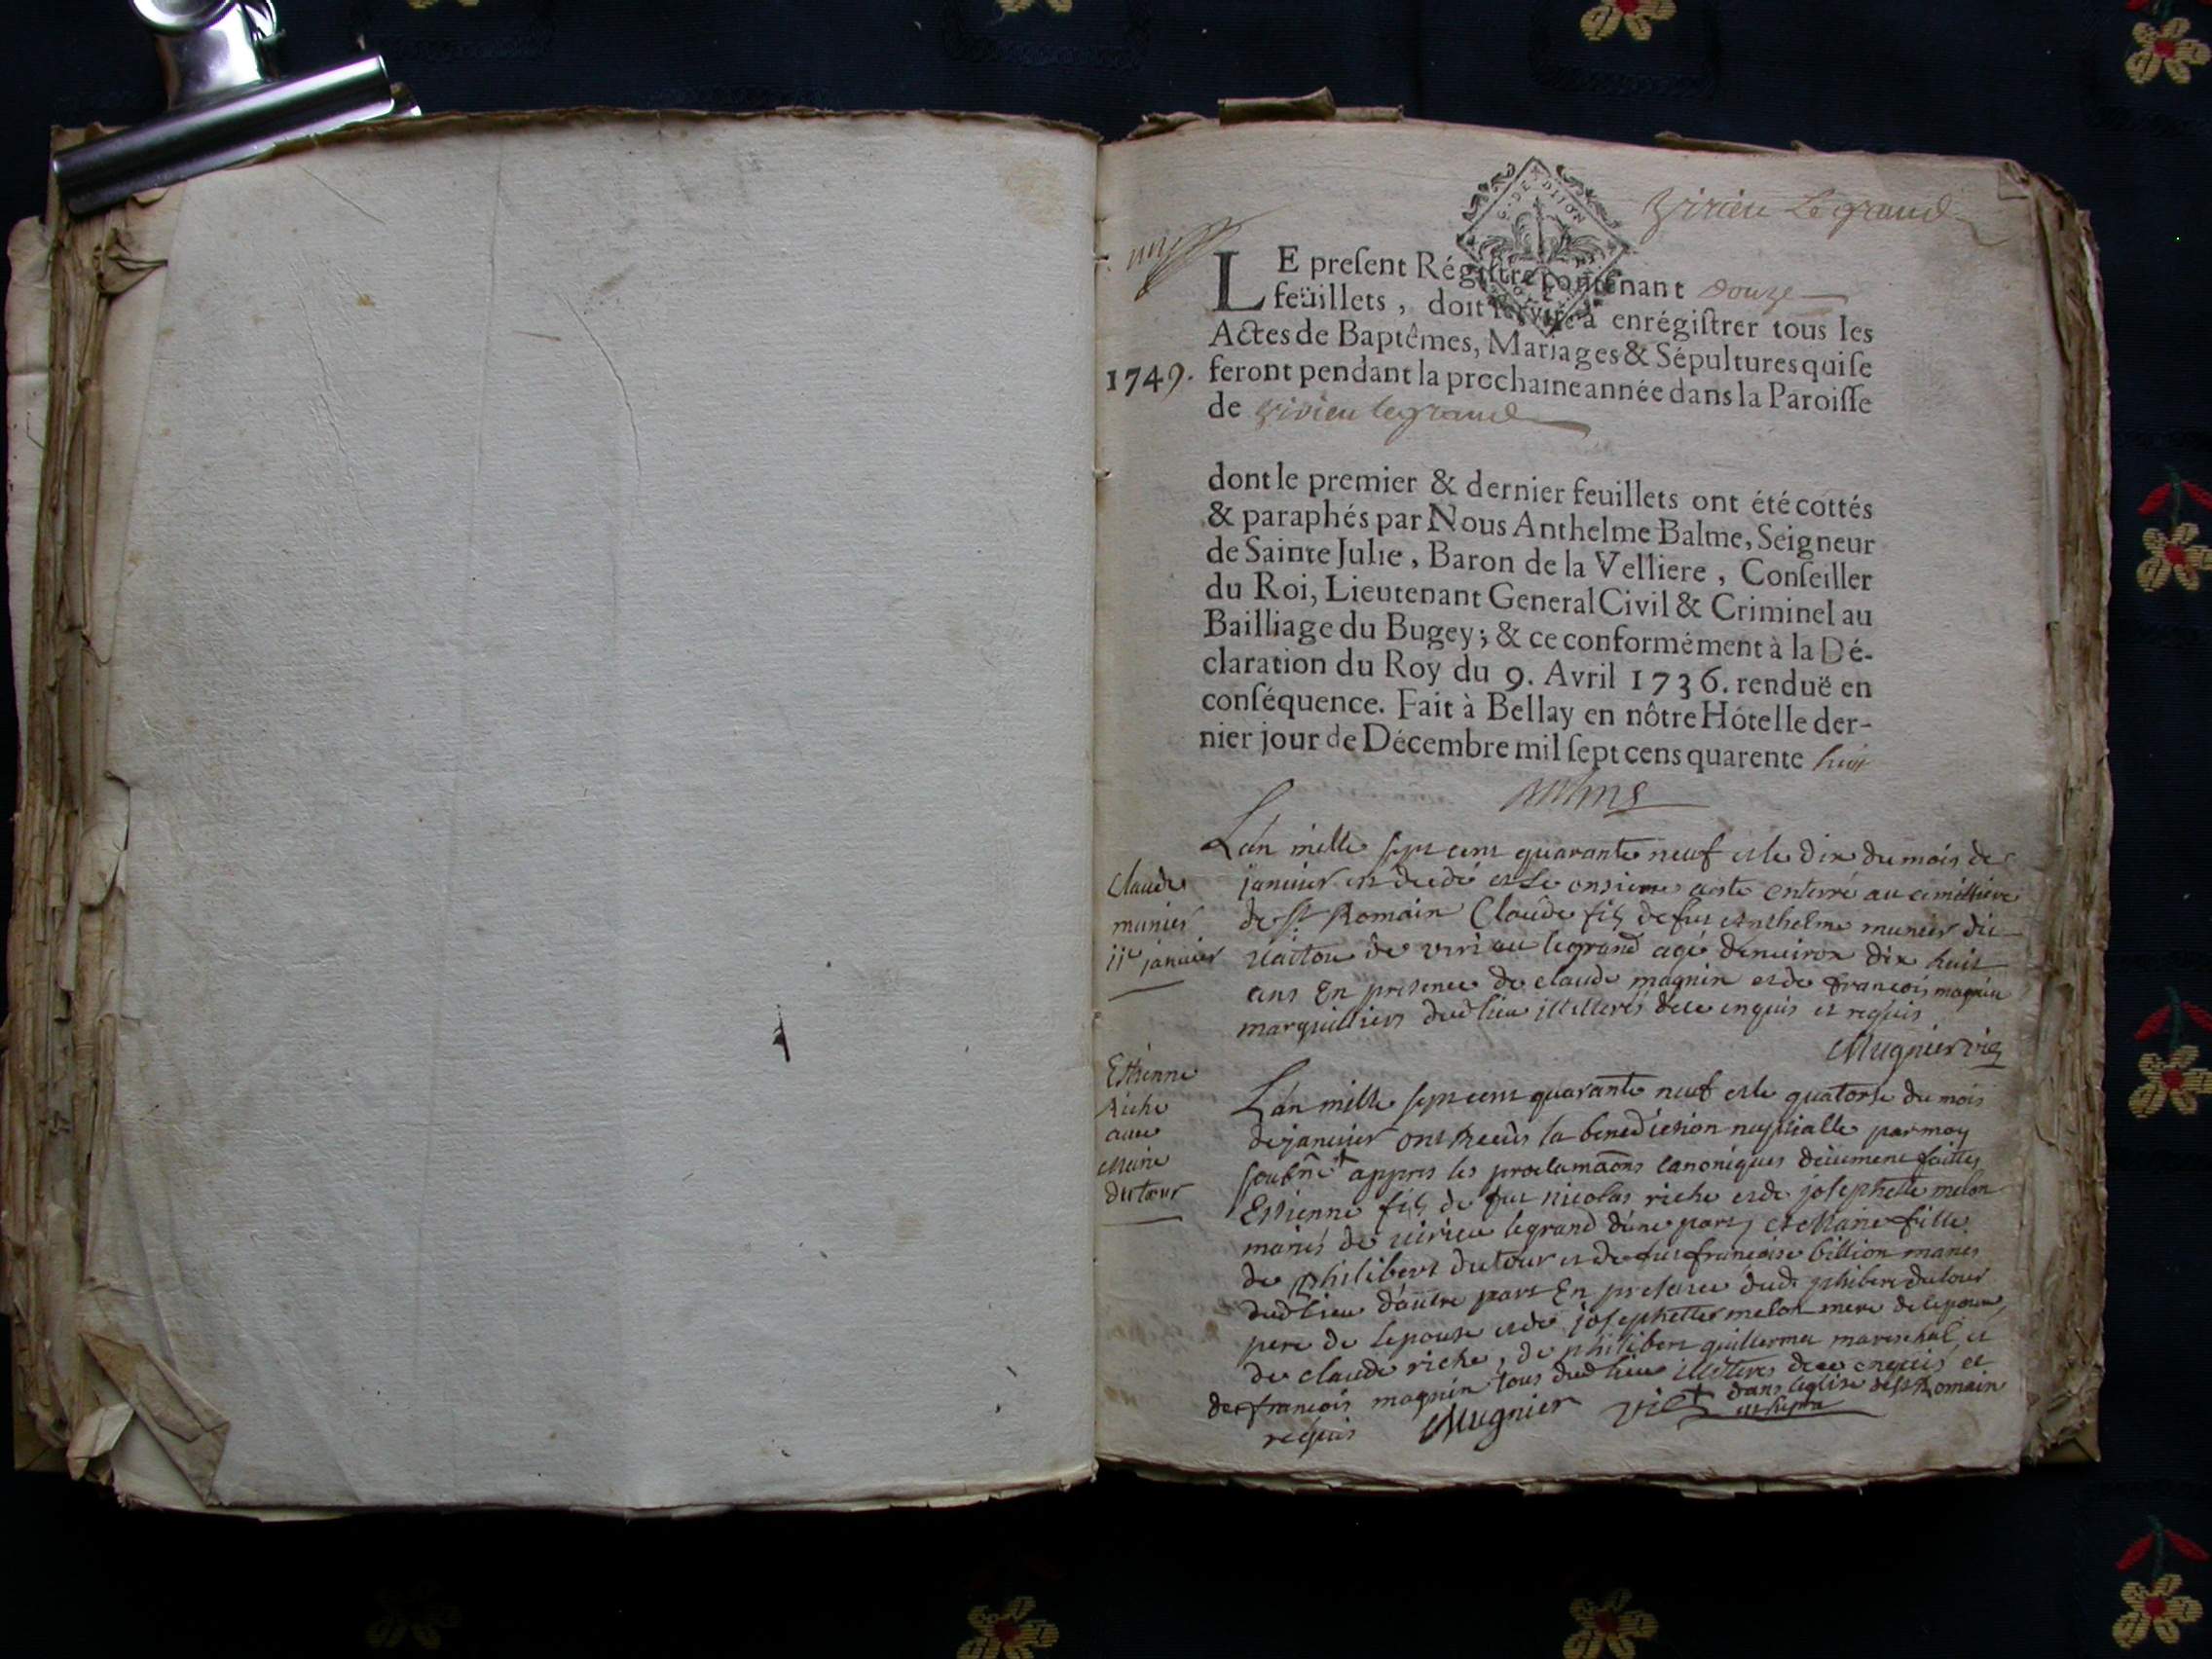 Virieu Le grand
G. DE DIJON
LE preſent Régiſtre contenant douze
feüillets, doit ſervir à enrégiſtrer tous les
Actes de Baptêmes, Mariages & Sépultures qui ſe
1749. feront pendant la prochaine année dans la Paroiſſe
de Virieu le grand
dont le premier & dernier feuillets ont été cottés
& paraphés par Nous Anthelme Balme, Seigneur
de Sainte Julie, Baron de la Velliere, Conſeiller
du Roi, Lieutenant General Civil & Criminel au
Bailliage du Bugey; & ce conformément à la Dé-
claration du Roy du 9. Avril 1736. renduë en
conſéquence. Fait à Bellay en nôtre Hótel le der-
nier jour de Décembre mil ſept cens quarente huit
Claude
munier
11e janvier
L'an mille sept cent quarante neuf et le dix du mois de
janvier est decedé et le onsieme a esté enterré au cimettiere
de St Romain Claude fils de fut Anthelme munier dit
de virieu legrand agé denviron dix huit
ans En presence de claude magnin et de francois magnin
marguilliers dud lieu illitterés de ce enquis et requis
Mugnier vic
Estienne
Riche
avec
Marie
dutour
L'an mille sept cent quarante neuf et le quatorse du mois
de janvier ont receus la benediction nuptialle par moy
soubné + appres les proclamaõns canoniques deuement faittes
Estienne fils de fut nicolas riche et de josephette melon
mariés de virieu legrand d'une part, et Marie fille
de philibert dutour et de fut francoise billion mariés
dud lieu d'autre part En presence dud phibert dutour
pere de lepouse et de josephette melon mere de lepoux,
de claude riche, de philibert guillermet mareschal et
de francois magnin tous dud lieu illitterés de ce enquis et
requis Mugnier vic + dans leglise de St Romain
ut supra